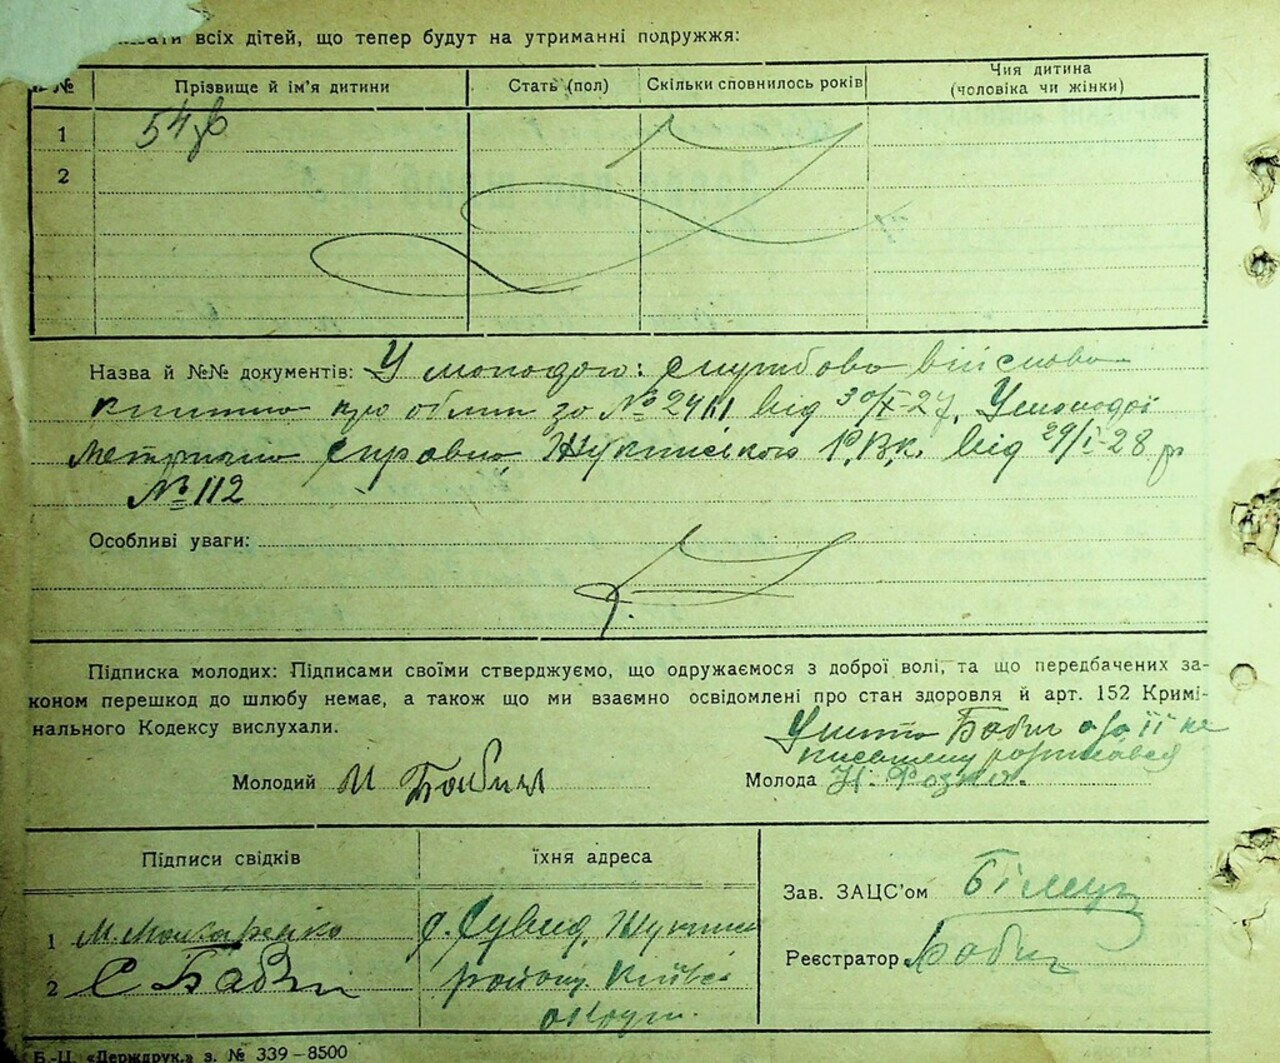 всіх дітей, що тепер будут на утриманні подружжя:
№ Прізвище й ім'я дитини Стать (пол) Скільки сповнилось років Чия дитина (чоловіка чи жінки)
1
2
Назва й №№ документів: У молодого: службова війскова
книжка про облік за № від 30/X-27, У молодої
справка Жукинського Р.В.К. від 29/I-28 р
№ 112
Особливі уваги:
Підписка молодих: Підписами своїми стверджуємо, що одружаємося з доброї волі, та що передбачених за-
коном перешкод до шлюбу немає, а також що ми взаємно освідомлені про стан здоровля й арт. 152 Кримі-
нального Кодексу вислухали.
Бабич а за її не
письмену розписався
Молодий И Бабич Молода
Підписи свідків їхня адреса
Зав. ЗАЦС'ом
1 М. Макаренко с. Сувид, Жукин
Реєстратор Бабич
2 С Бабич району Київс
округи.
Б.-Ц. «Держдрук.» з. № 339—8500